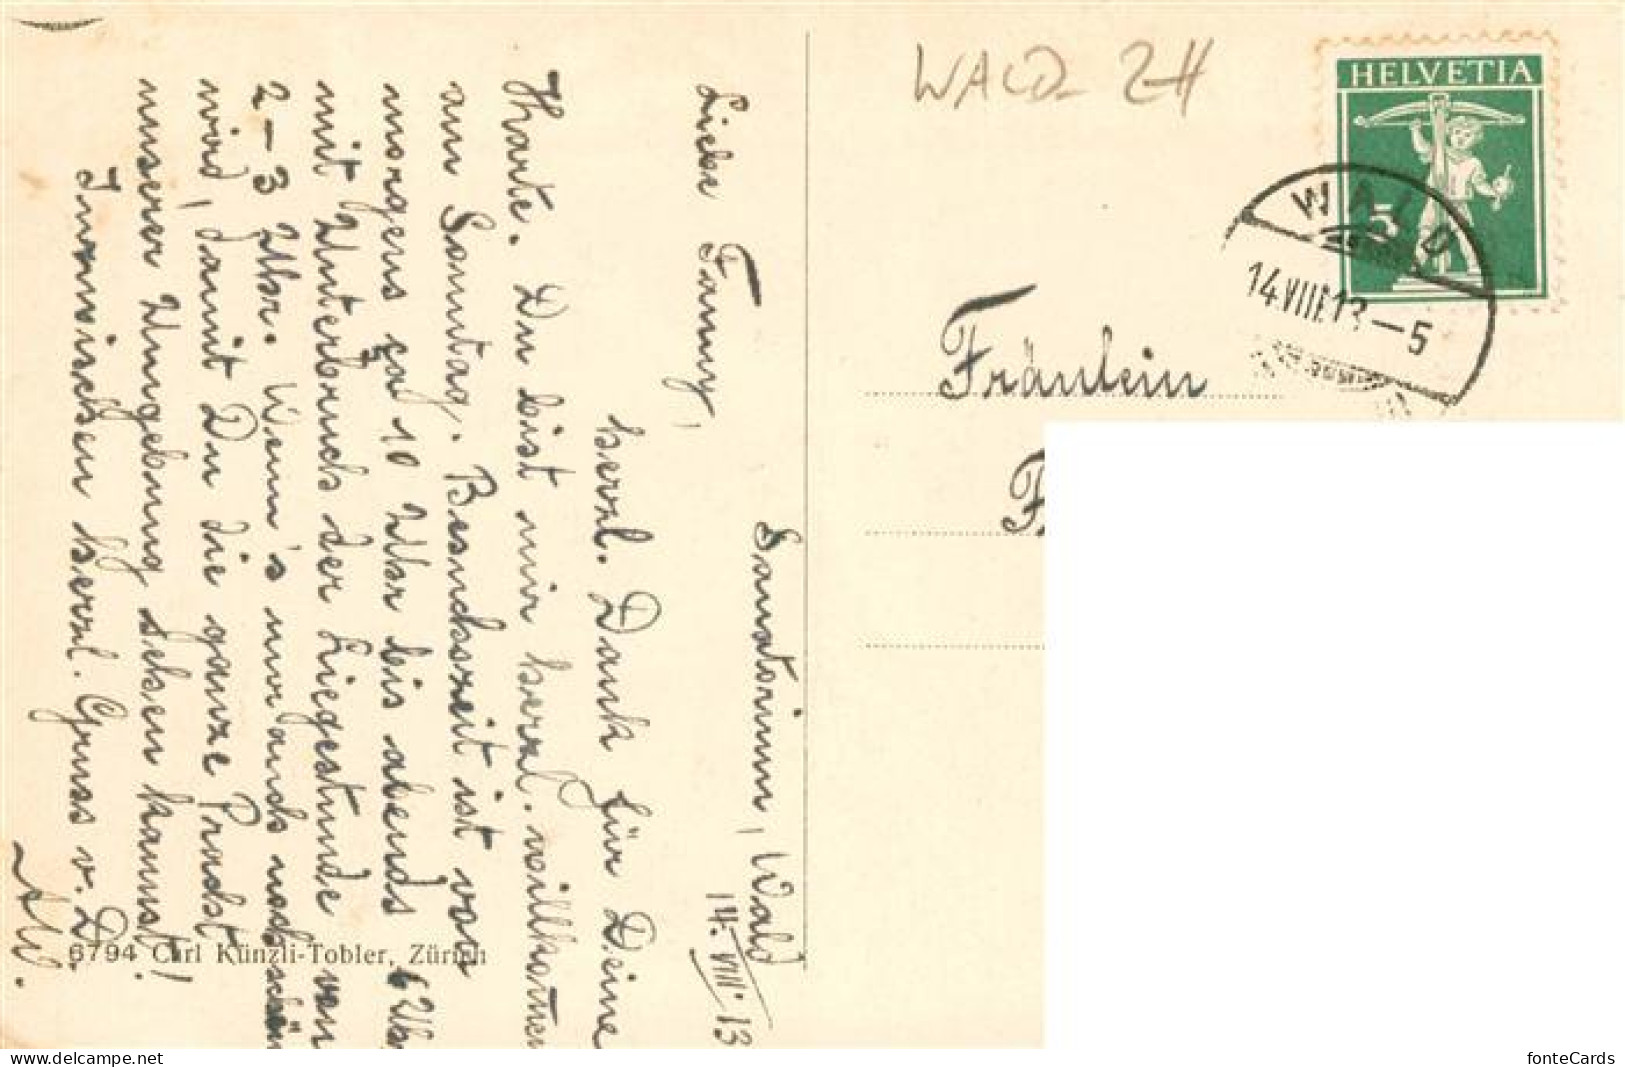 Sanatorium, Wald
14. VIII. 13
Liebe Fanny,
herzl. Dank für Deine
Karte. Du bist mir herzl. willkommen
am Sonntag. Besuchszeit ist von
morgens ca 10 Uhr bis abends 6 Uhr
mit Unterbruch der Liegestunde von
2-3 Uhr. Wenn's nur auch noch schön
wird, damit Du die ganze Pracht
unserer Umgebung sehen kannst!
Inzwischen herzl. Gruss v. D.
6794 Carl Künzli-Tobler, Zürich
WALD ZH
HELVETIA
5
WALD
14.VIII.13-5
Fräulein
fonteCards